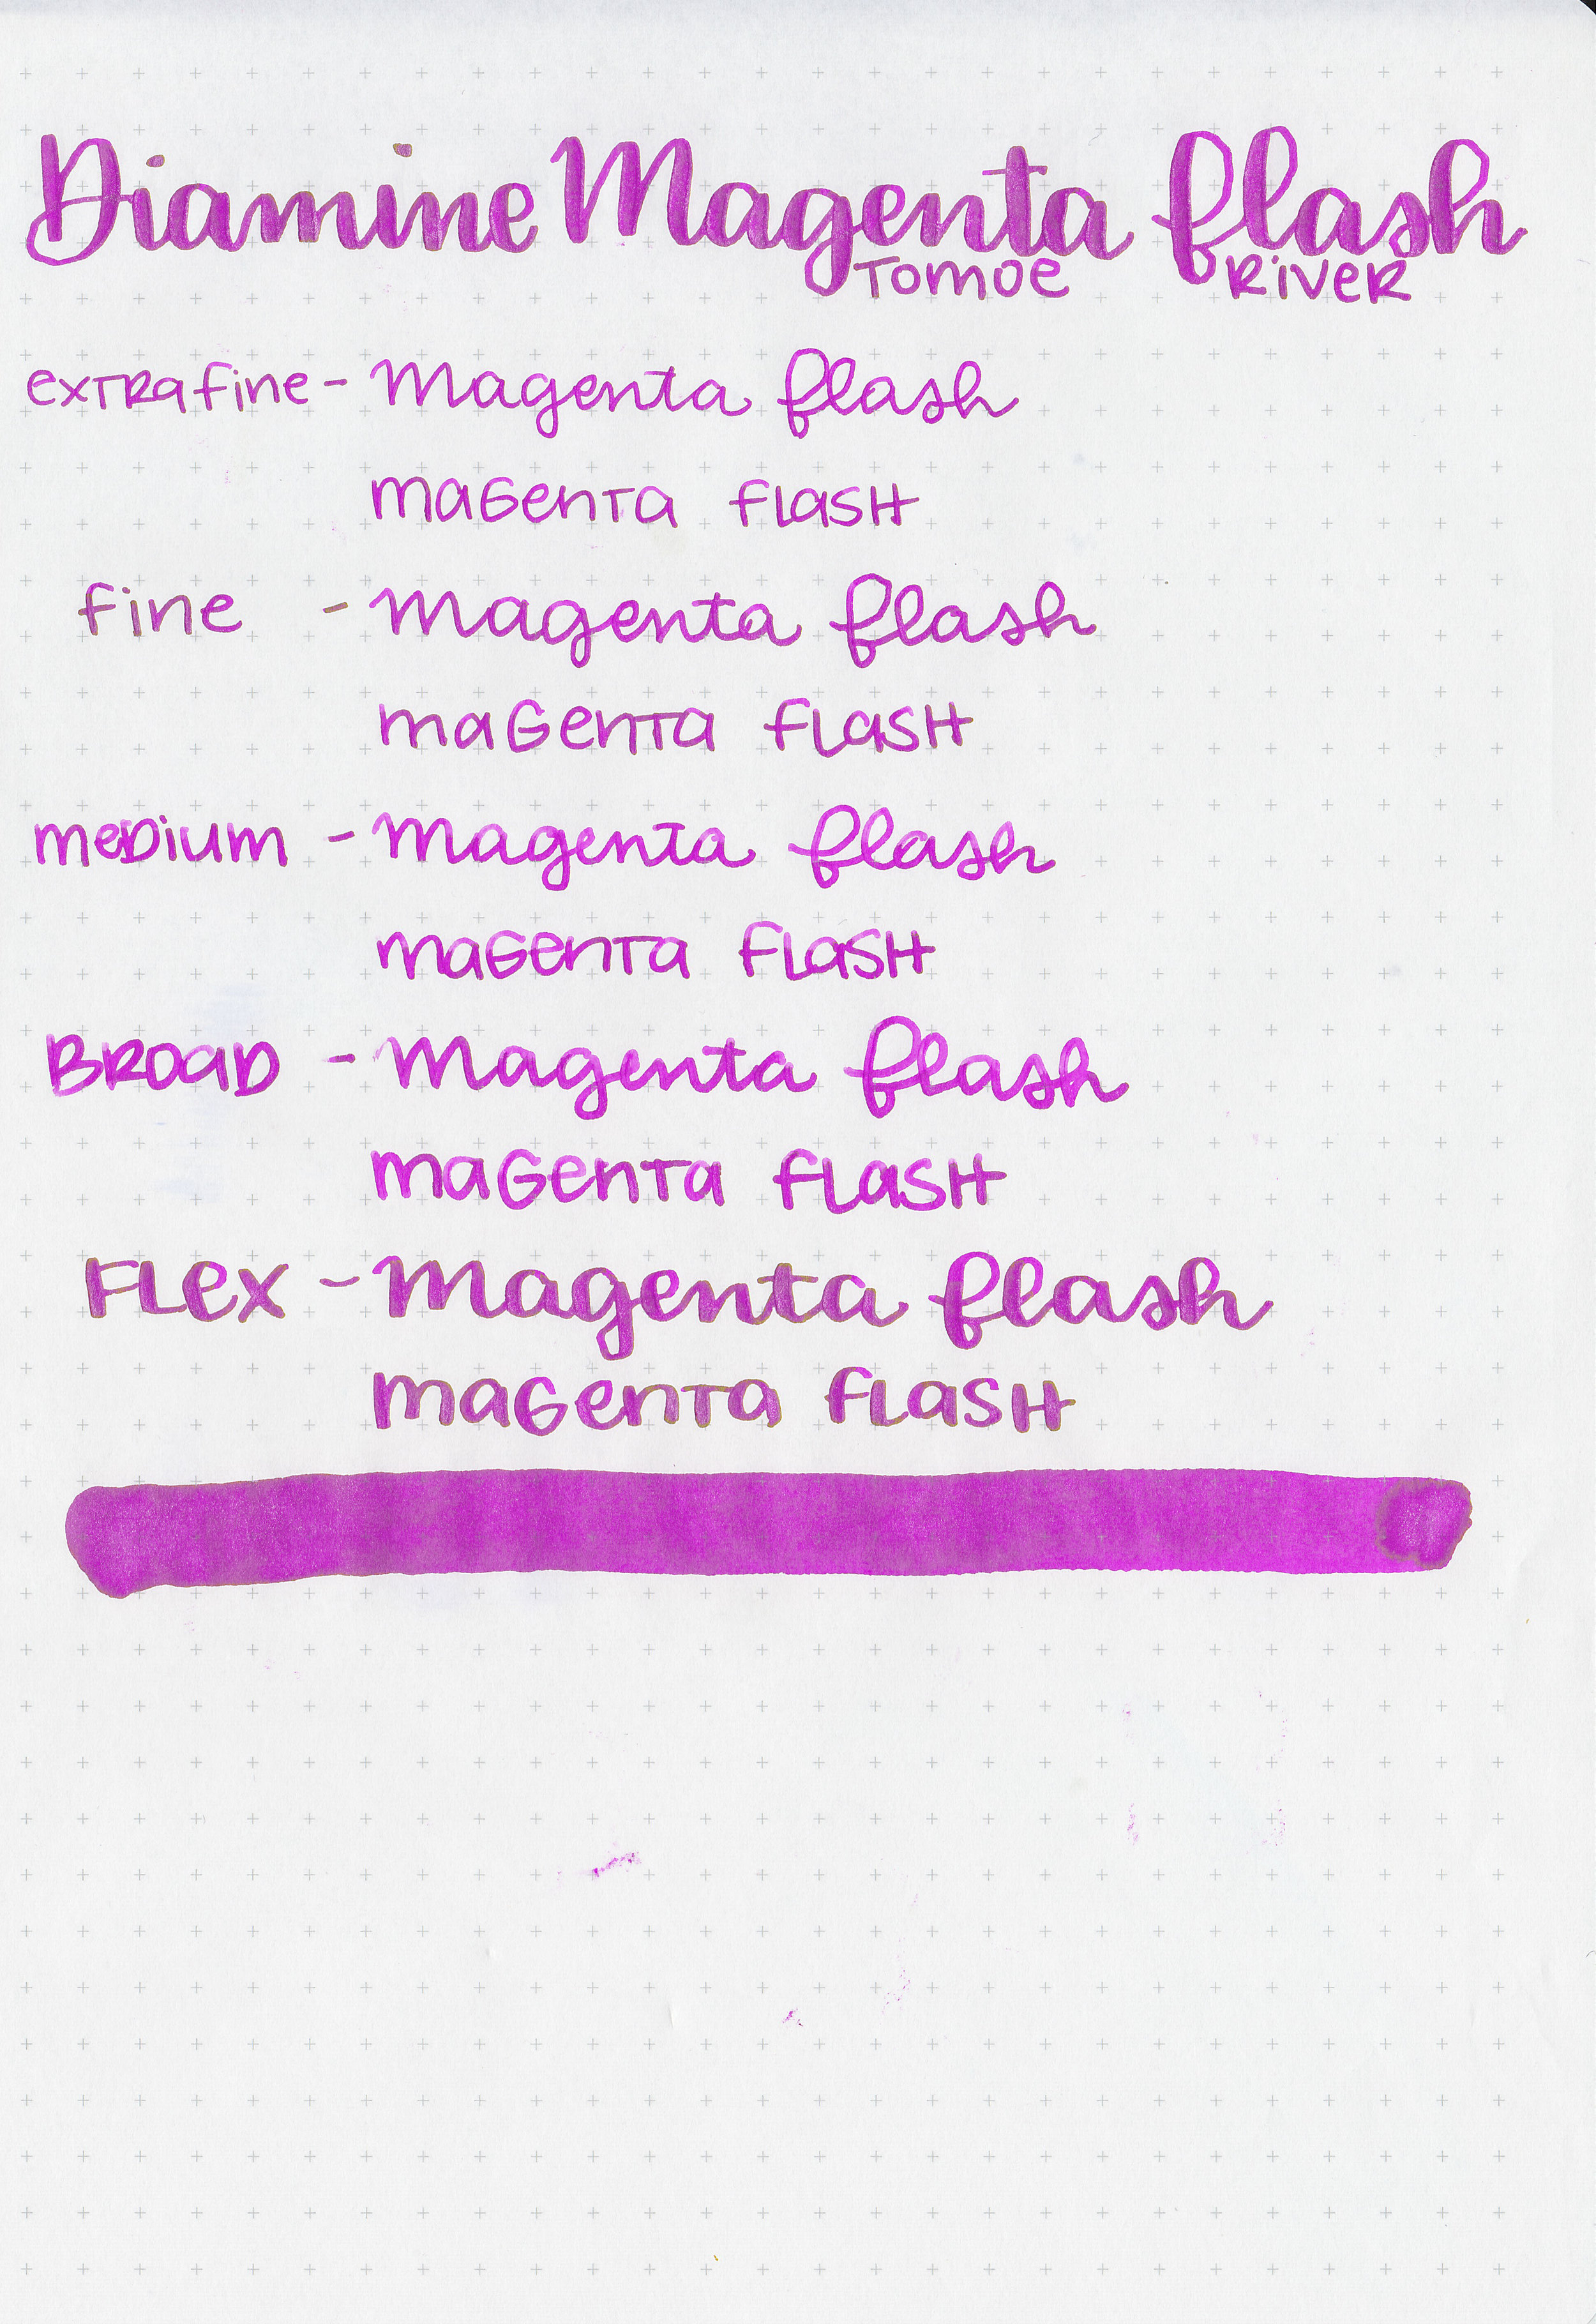 Diamine Magenta flash
Tomoe River
extra fine - Magenta flash
magenta flash
fine - Magenta flash
magenta flash
medium - Magenta flash
magenta flash
Broad - Magenta flash
magenta flash
Flex - Magenta flash
magenta flash